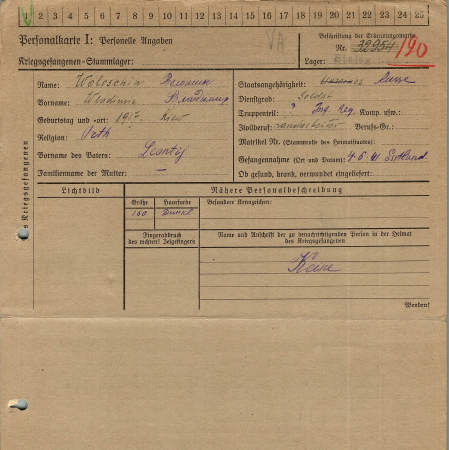 1 2 3 4 5 6 7 8 9 10 11 12 13 14 15 16 17 18 19 20 21 22 23 24 25
Personalkarte I: Personelle Angaben
Kriegsgefangenen-Stammlager:
VA
Beschriftung der Erkennungsmarke
Nr. 32954 /190
Lager:
des Kriegsgefangenen
Name: Woloschin
Vorname: Wladimir Владимир
Geburtstag und -ort: 1917. Kiew
Religion: Orth
Vorname des Vaters: Leontij
Familienname der Mutter: —
Staatsangehörigkeit: Russe
Dienstgrad: Soldat
Truppenteil: ? Inf. Reg. Komp. usw.:
Zivilberuf: Landarbeiter Berufs-Gr.:
Matrikel Nr. (Stammrolle des Heimatstaates):
Gefangennahme (Ort und Datum): Estland
Ob gesund, krank, verwundet eingeliefert:
Lichtbild
Nähere Personalbeschreibung
Größe Haarfarbe Besondere Kennzeichen:
160 Dunkel
Fingerabdruck
des rechten! Zeigefingers
Name und Anschrift der zu benachrichtigenden Person in der Heimat
des Kriegsgefangenen
Keine
Wenden!